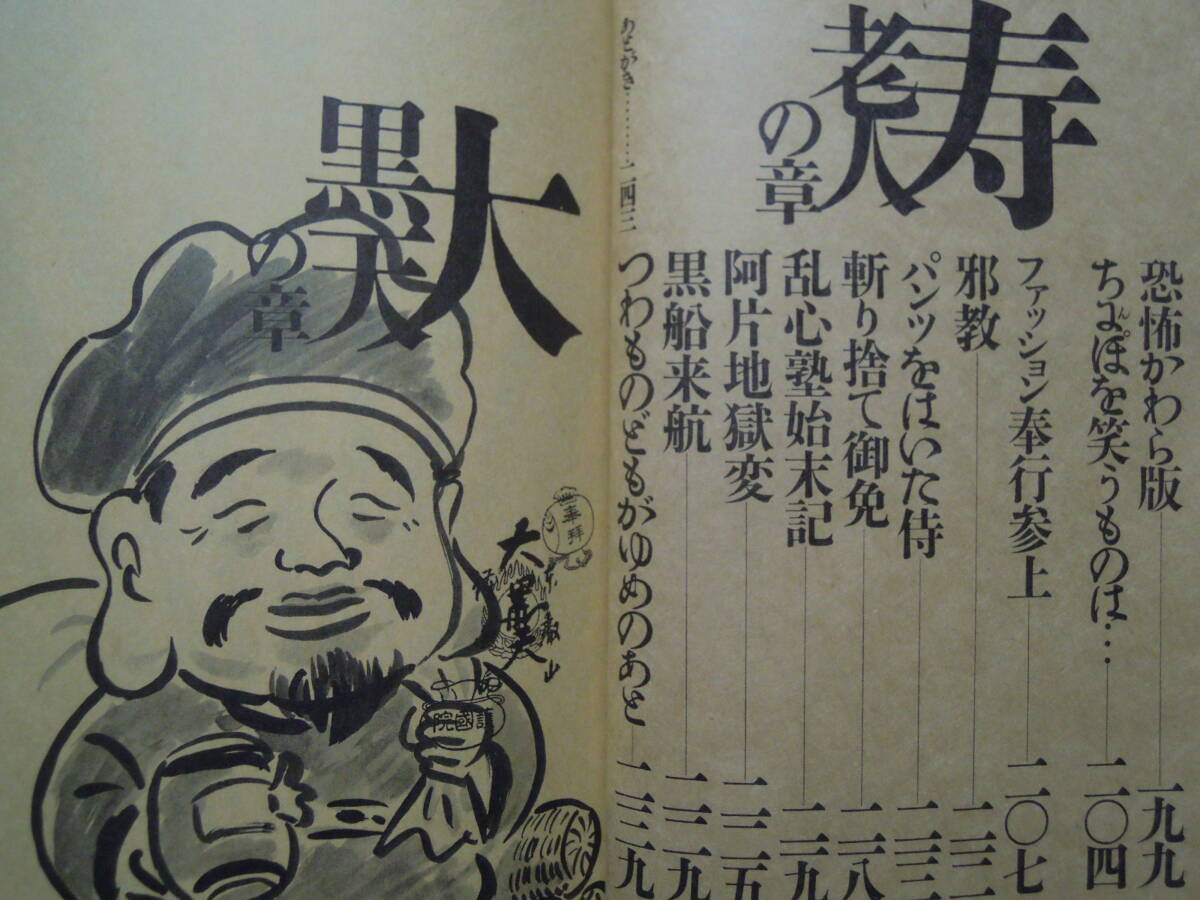 寿老人
の章
恐怖かわら版 一九九
ちんぽを笑うものは… 二〇四
ファッション奉行参上 二〇七
邪教
パンツをはいた侍
斬り捨て御免
乱心塾始末記
阿片地獄変
黒船来航
つわものどもがゆめのあと
あとがき………二四三
大黒天
の章
奉拝
大黒天
護國院